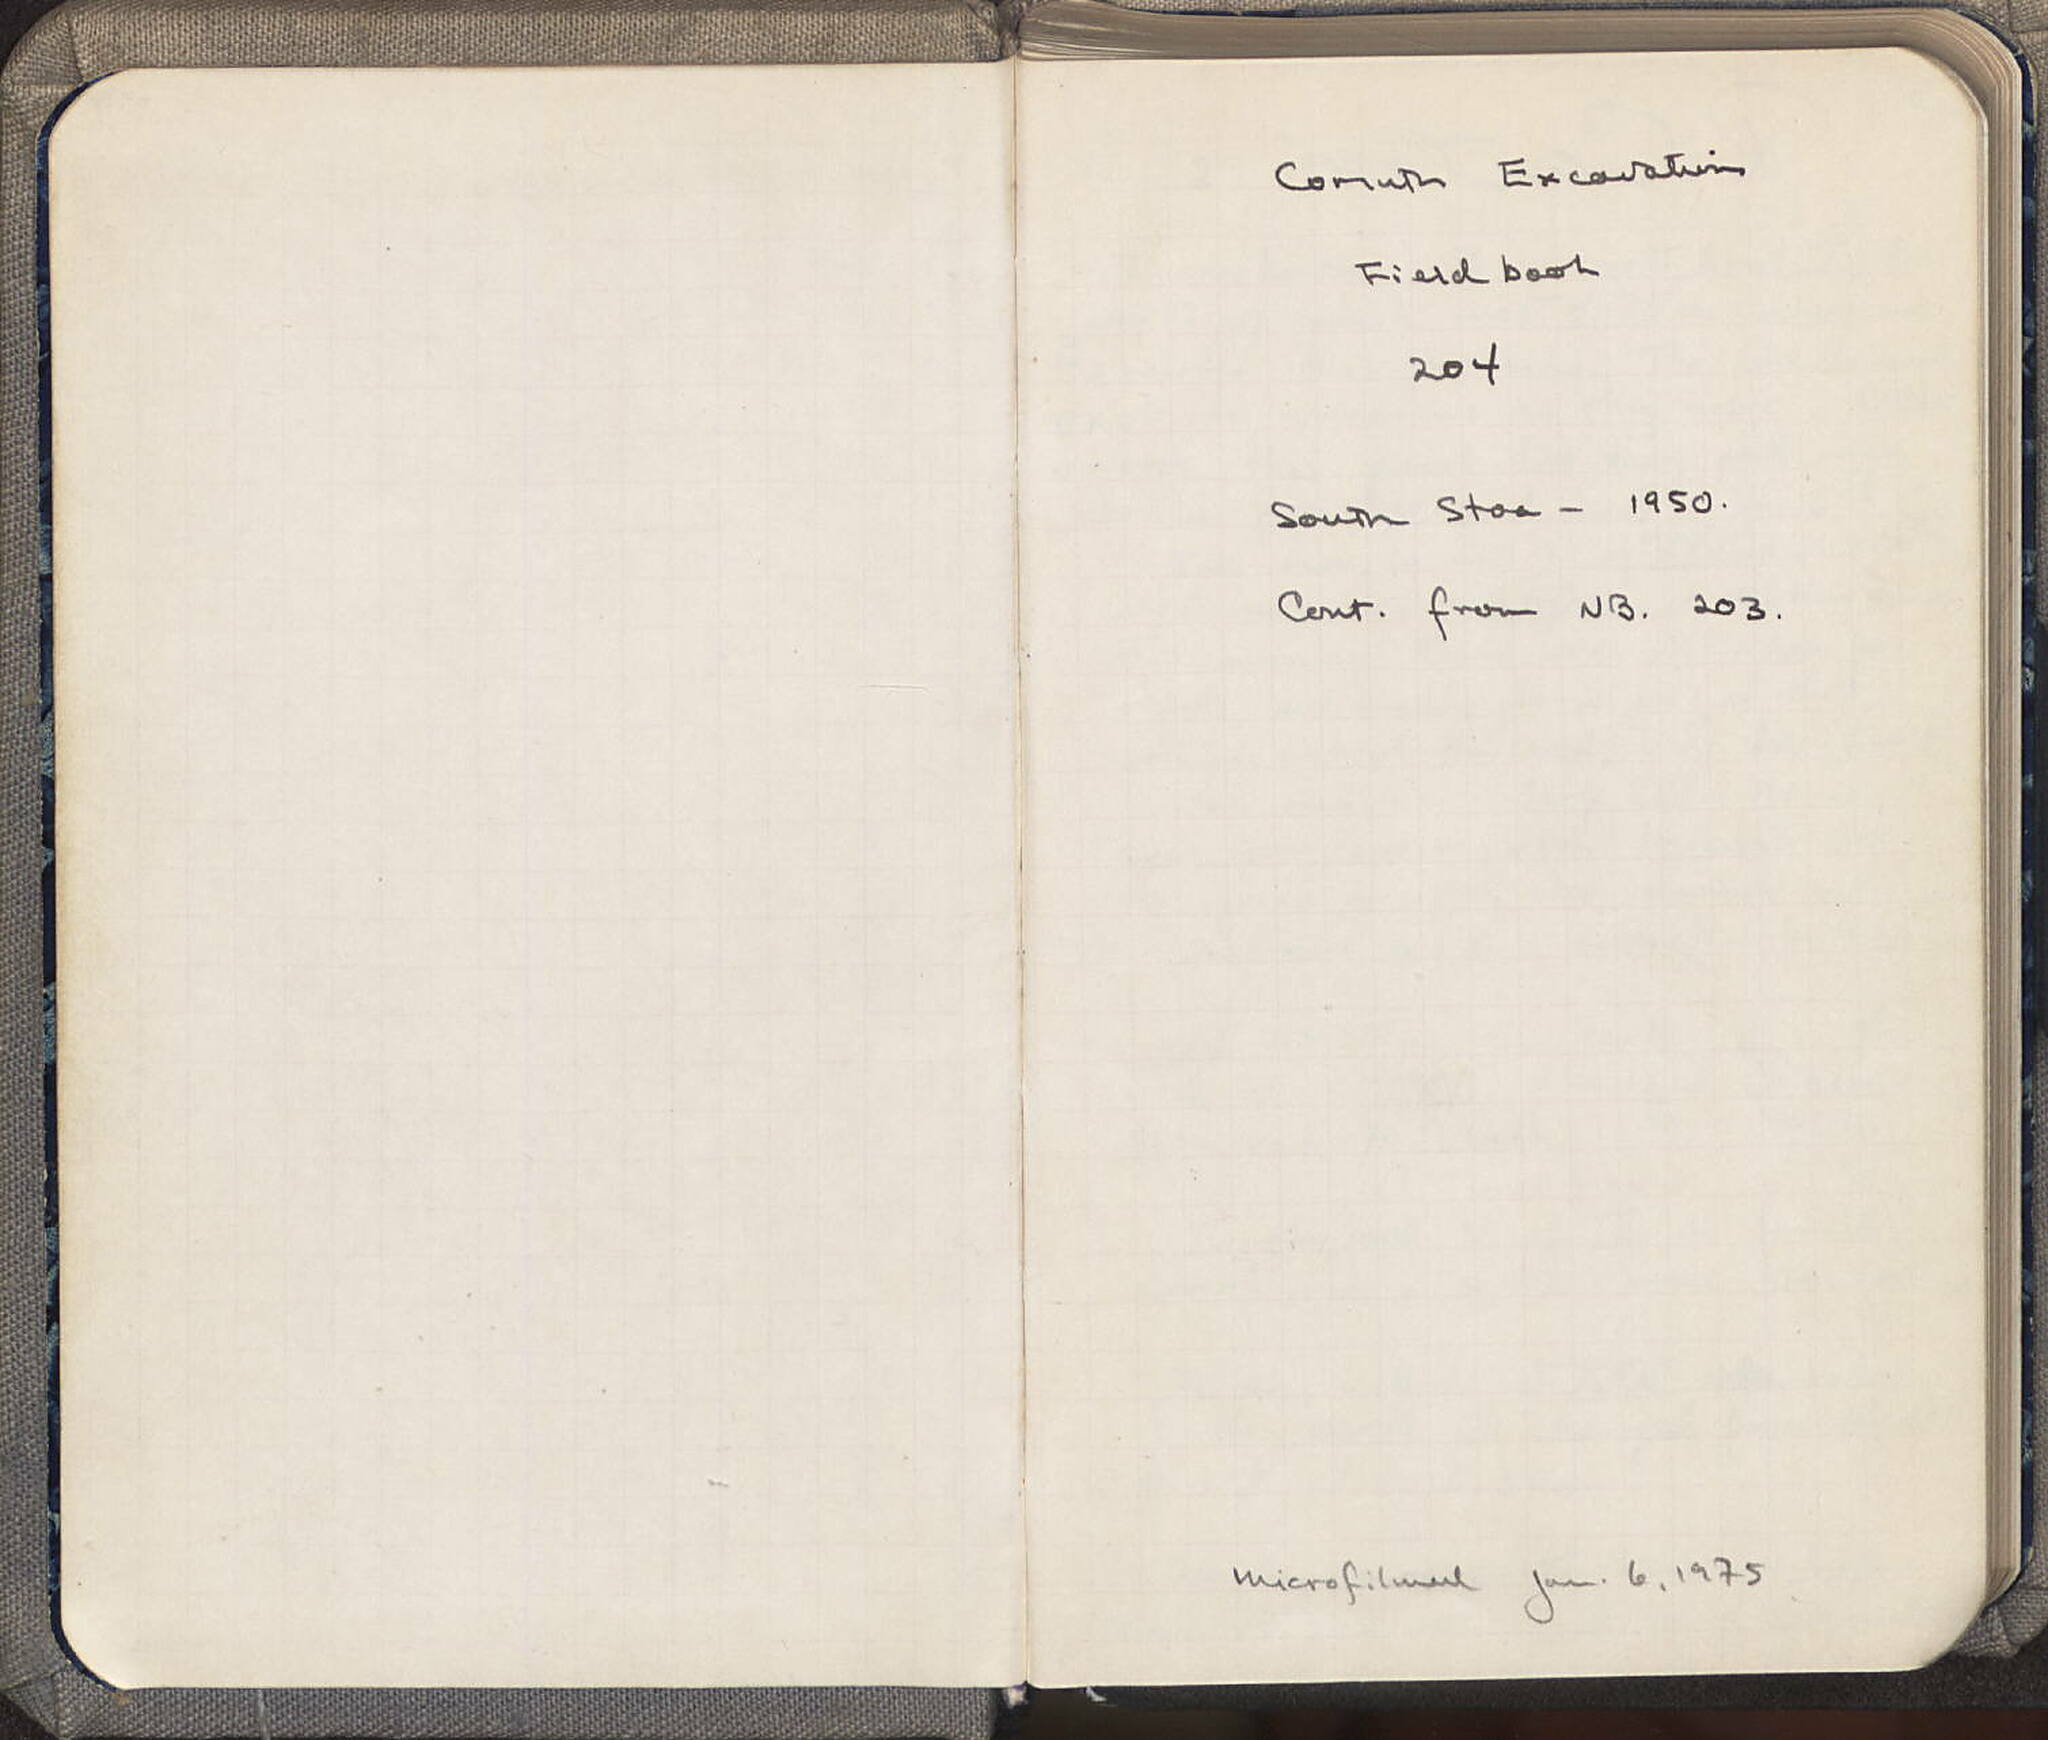 Corinth Excavations
Field book
204
South Stoa - 1950.
Cont. from NB. 203.
Microfilmed Jan. 6, 1975